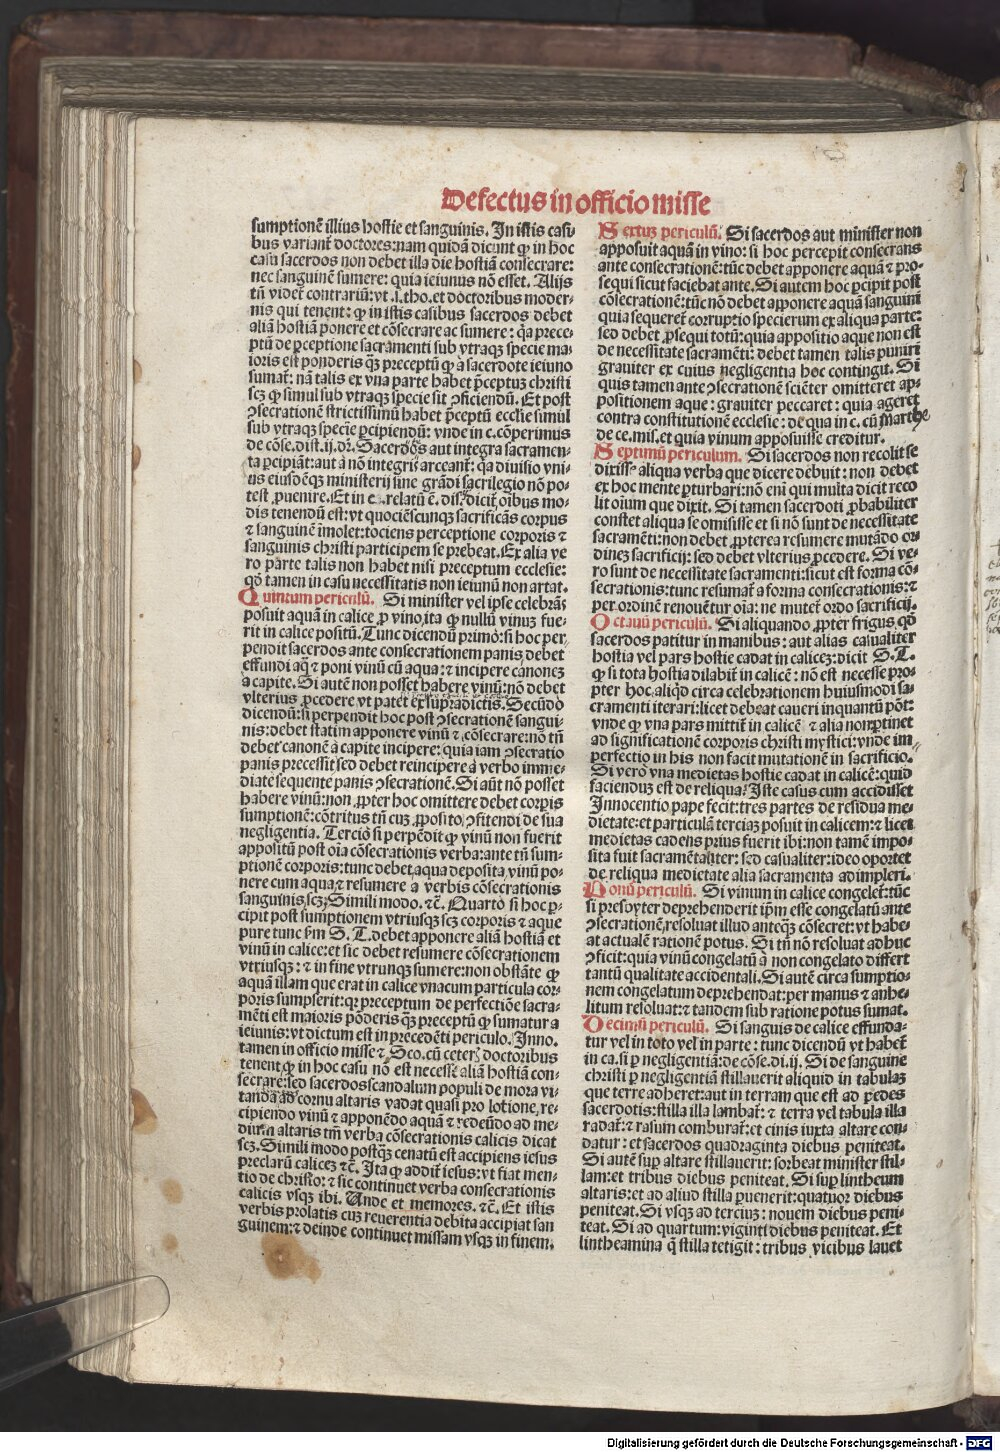 Defectus in officio misse
sumptionē illius hostie et sanguinis. In istis casi-
bus variant doctores: nam quidā dicunt ꝙ in hoc
casu sacerdos non debet illa die hostiā consecrare:
nec sanguinē sumere: quia ieiunus nō esset. Alijs
tn̄ videt contrariū: vt .s. tho. et doctoribus moder-
nis qui tenent: ꝙ in istis casibus sacerdos debet
aliā hostiā ponere et cōsecrare ac sumere: qꝛ prece-
ptū de ꝑceptione sacramenti sub vtraqꝫ specie ma-
ioris est ponderis qꝫ preceptū ꝙ a sacerdote ieiuno
sumat: nā talis ex vna parte habet p̄ceptuꝫ christi
scꝫ ꝙ simul sub vtraqꝫ specie sit ꝯficiendū. Et post
ꝯsecrationē strictissimū habet p̄ceptū ecclie simul
sub vtraqꝫ specie ꝑcipiendū: vnde in c. cōperimus
de cōse. dist. ij. dꝛ. Sacerdotes aut integra sacramen-
ta ꝑcipiāt: aut a nō integris arceant: qꝛ diuisio vni-
us eiusdēqꝫ ministerij sine grādi sacrilegio nō po-
test ꝓuenire. Et in c. relatū ē. dis. dicit oībus mo-
dis tenendū est: vt quociēscunqꝫ sacrificās corpus
⁊ sanguinē īmolet: tociens perceptione corporis ⁊
sanguinis christi participem se prebeat. Ex alia ve
ro parte talis non habet nisi preceptum ecclesie:
qd̄ tamen in casu necessitatis non ieiunū non artat.
Quintum periculū. Si minister vel ipse celebrās
posuit aquā in calice ꝓ vino, ita ꝙ nullū vinuꝫ fue-
rit in calice positū. Tunc dicendū primo: si hoc per
pendit sacerdos ante consecrationem panis debet
effundi aqꝫ ⁊ poni vinū cū aqua: ⁊ incipere canoneꝫ
a capite. Si autē non posset habere vinū: nō debet
vlterius ꝓcedere vt patet ex supradictis. Secūdo
dicendū: si perpendit hoc post ꝯsecrationē sangui-
nis: debet statim apponere vinū ⁊ cōsecrare: nō tn̄
debet canonē a capite incipere: quia iam ꝯsecratio
panis precessit sed debet reincipere a verbo imme-
diate sequente panis ꝯsecrationē. Si aūt nō posset
habere vinū: non ꝓpter hoc omittere debet corpis
sumptionē: cōtritus tn̄ cuꝫ ꝓposito ꝯfitendi de sua
negligentia. Tercio si perpēdit ꝙ vinū non fuerit
appositū post oīa cōsecrationis verba: ante tn̄ sum-
ptionē corporis: tunc debet aqua deposita, vinū po-
nere cum aqua: ⁊ resumere a verbis cōsecrationis
sanguinis scꝫ Simili modo. ⁊c̄. Quarto si hoc ꝑ-
cipit post sumptionem vtriusqꝫ scꝫ corporis ⁊ aque
pure tunc fm̄ S. T. debet apponere aliā hostiā et
vinū in calice: et sic debet resumere cōsecrationem
vtriusqꝫ: ⁊ in fine vtrunqꝫ sumere: non obstāte ꝙ
aquā illam que erat in calice vnacum particula cor-
poris sumpserit: qꝛ preceptum de perfectiōe sacra-
mēti est maioris pōderis qꝫ preceptū ꝙ sumatur a
ieiunis: vt dictum est in precedēti periculo. Inno.
tamen in officio misse ⁊ Sco. cū ceteris doctoribus
tenent ꝙ in hoc casu nō est necesse aliā hostiā con-
secrare: sed sacerdos scandalum populi de mora vi-
tandi ad cornu altaris vadat quasi pro lotione, re-
cipiendo vinū ⁊ apponēdo aquā ⁊ redeūdo ad me-
dium altaris tm̄ verba cōsecrationis calicis dicat
scꝫ. Simili modo postqꝫ cenatū est accipiens iesus
preclarū caliceꝫ ⁊c̄. Ita ꝙ addit iesus: vt fiat men-
tio de christo: ⁊ sic continuet verba consecrationis
calicis vsqꝫ ibi. Unde et memores. ⁊c̄. Et istis
verbis prolatis cuꝫ reuerentia debita accipiat san
guinem: ⁊ deinde continuet missam vsqꝫ in finem.
Sextuꝫ periculū. Si sacerdos aut minister non
apposuit aquā in vino: si hoc percepit consecrans
ante consecrationē: tūc debet apponere aquā ⁊ pro-
sequi sicut faciebat ante. Si autem hoc ꝑcipit post
cōsecrationē: tūc nō debet apponere aquā sanguini
quia sequeret corruptio specierum ex aliqua parte:
sed debet ꝓsequi totū: quia appositio aque non est
de necessitate sacramēti: debet tamen talis puniri
grauiter ex cuius negligentia hoc contingit. Si
quis tamen ante ꝯsecrationē sciēter omitteret ap-
positionem aque: grauiter peccaret: quia ageret
contra constitutionē ecclesie: de qua in c. cū Marthe
de ce. mis. et quia vinum apposuisse creditur.
Septimū periculum. Si sacerdos non recolit se
dixisse aliqua verba que dicere debuit: non debet
ex hoc mente ꝑturbari: nō enī qui multa dicit reco
lit oīum que dixit. Si tamen sacerdoti ꝓbabiliter
constet aliqua se omisisse et si nō sunt de necessitate
sacramēti: non debet ꝓpterea resumere mutādo or-
dineꝫ sacrificij: sed debet vlterius ꝓcedere. Si ve-
ro sunt de necessitate sacramenti: sicut est forma cō-
secrationis: tunc resumat a forma consecrationis: ⁊
per ordinē renouētur oīa: ne mutet ordo sacrificij.
Octauū periculū. Si aliquando ꝓpter frigus qd̄
sacerdos patitur in manibus: aut alias casualiter
hostia vel pars hostie cadat in caliceꝫ: dicit S. T.
ꝙ si tota hostia dilabit in calicē: nō est necesse pro-
pter hoc, aliqd̄ circa celebrationem huiusmodi sa-
cramenti iterari: licet debeat caueri inquantū pōt:
vnde ꝙ vna pars mittit in calicē ⁊ alia non ꝑtinet
ad significationē corporis christi mystici: vnde im
perfectio in his non facit mutationē in sacrificio.
Si vero vna medietas hostie cadat in calicē: quid
faciendum est de reliqua? Iste casus cum accidisset
Innocentio pape fecit: tres partes de residua me-
dietate: et particulā terciaꝫ posuit in calicem: ⁊ licet
medietas cadens prius fuerit ibi: non tamē impo-
sita fuit sacramētaliter: sed casualiter: ideo oportet
de reliqua medietate alia sacramenta adimpleri.
Nonū periculū. Si vinum in calice congelet: tūc
si presbyter deprehenderit ip̄m esse congelatū ante
ꝯsecrationē, resoluat illud anteqꝫ cōsecret: vt habe-
at actualē rationē potus. Si tn̄ nō resoluat adhuc
ꝯficit: quia vinū congelatū a non congelato differt
tantū qualitate accidentali. Si autē circa sumptio-
nem congelatum deprehendat: per manus ⁊ anhe-
litum resoluat: ⁊ tandem sub ratione potus sumat.
Decimū periculū. Si sanguis de calice effunda-
tur vel in toto vel in parte: tunc dicendū vt habet
in ca. si ꝑ negligentiā: de cōse. di. ij. Si de sanguine
christi ꝑ negligentiā stillauerit aliquid in tabulaꝫ
que terre adheret: aut in terram que est ad ꝑedes
sacerdotis: stilla illa lambat: ⁊ terra vel tabula illa
radat: ⁊ rasum comburat: et cinis iuxta altare con-
datur: et sacerdos quadraginta diebus peniteat.
Si autē suꝑ altare stillauerit: sorbeat minister stil-
lam: et tribus diebus peniteat. Si suꝑ lintheum
altaris: et ad aliud stilla ꝑuenerit: quatuor diebus
peniteat. Si vsqꝫ ad terciuꝫ: nouem diebus peni-
teat. Si ad quartum: viginti diebus peniteat. Et
lintheamina q̄ stilla tetigit: tribus vicibus lauet
Digitalisierung gefördert durch die Deutsche Forschungsgemeinschaft - DFG